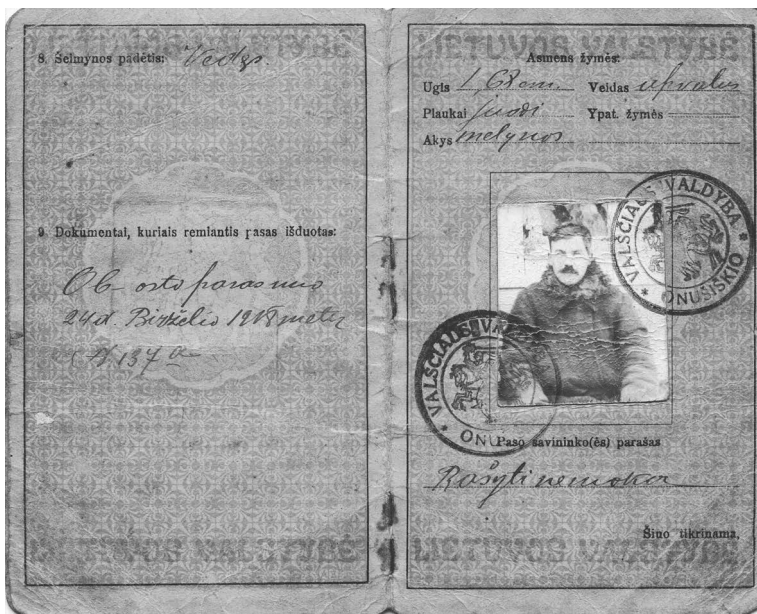 LIETUVOS VALSTYBĖ
8. Šeimynos padėtis: Vedęs.
9 Dokumentai, kuriais remiantis pasas išduotas:
Ob-osto parasmuo
24 d. Birželio 1918 metų
N 137
LIETUVOS VALSTYBĖ
LIETUVOS VALSTYBĖ
Asmens žymės:
Ugis 1,68 cm. Veidas apvalus
Plaukai juodi Ypat. žymės
Akys mėlynos
VALSČIAUS VALDYBA
ONUŠIŠKIO
VALSČIAUS VAL
ONU
Paso savininko(ės) parašas
Rašyti nemoka
Šiuo tikrinama,
LIETUVOS VALSTYBĖ